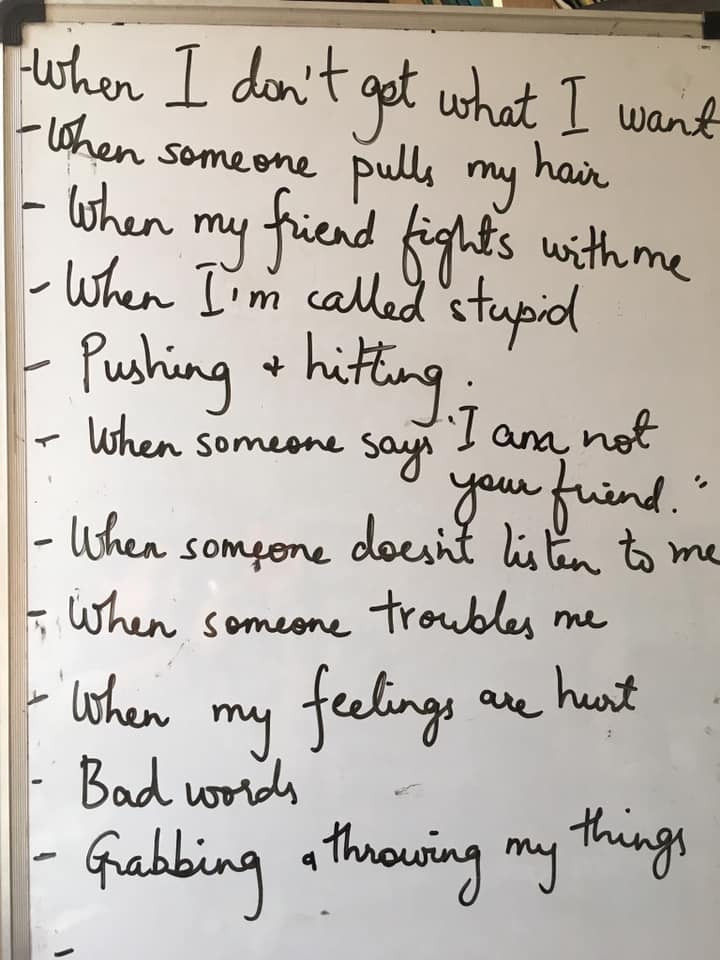 -When I don't get what I want
- When someone pulls my hair
- When my friend fights with me
- When I'm called stupid
- Pushing & hitting.
- When someone says "I am not
your friend."
- When someone doesn't listen to me
- When someone troubles me
- When my feelings are hurt
- Bad words
- Grabbing & throwing my things
-